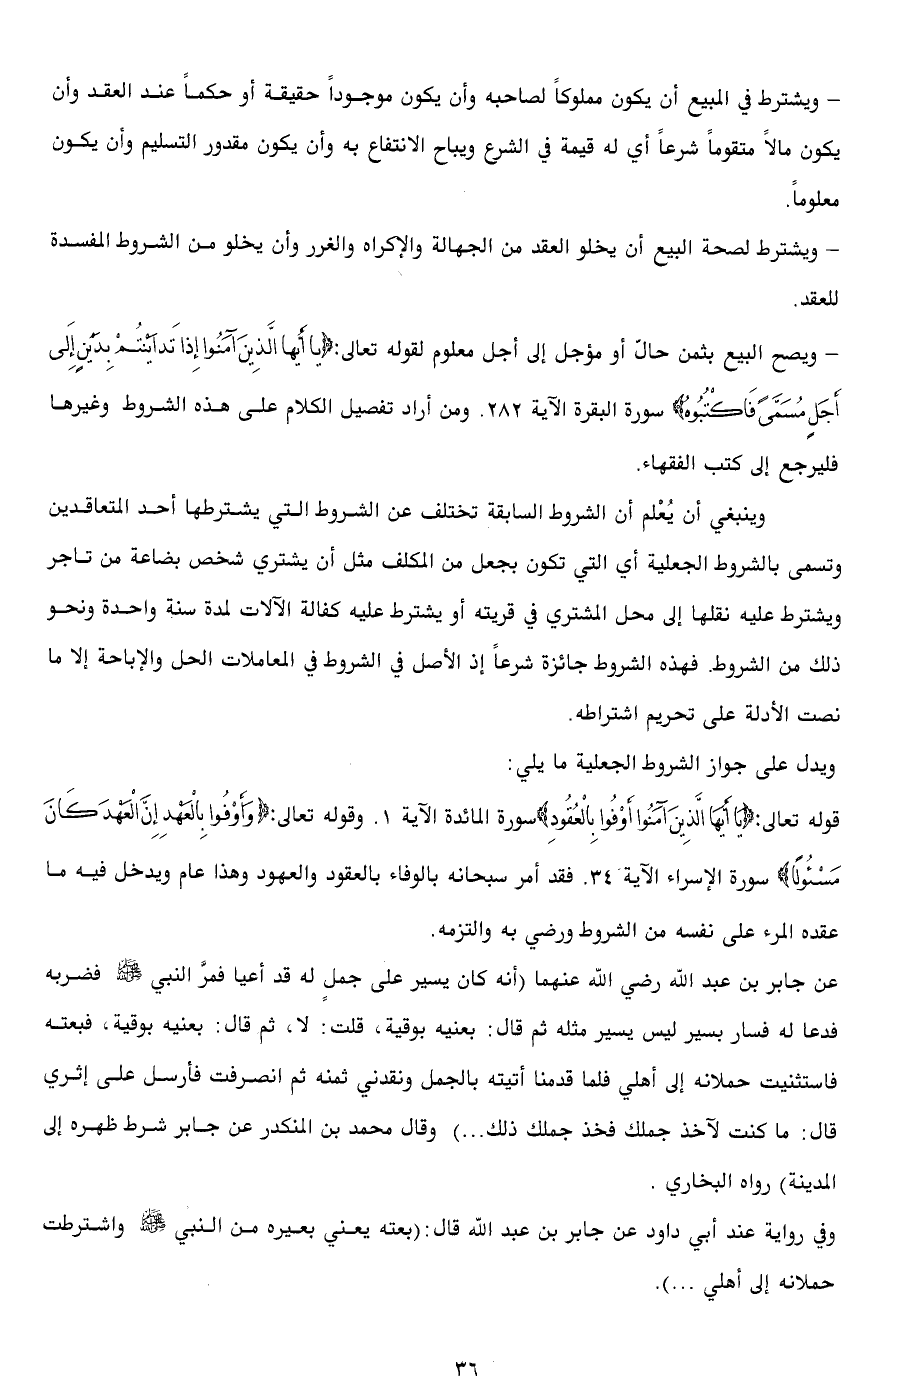 – ويشترط في المبيع أن يكون مملوكاً لصاحبه وأن يكون موجوداً حقيقة أو حكماً عند العقد وأن
يكون مالاً متقوماً شرعاً أي له قيمة في الشرع ويباح الانتفاع به وأن يكون مقدور التسليم وأن يكون
معلوماً.
– ويشترط لصحة البيع أن يخلو العقد من الجهالة والإكراه والغرر وأن يخلو من الشروط المفسدة
للعقد.
– ويصح البيع بثمن حالّ أو مؤجل إلى أجل معلوم لقوله تعالى:﴿يا أَيها الَّذِينَ آمَنُوا إِذَا تَدَايَنْتُمْ بِدَيْنٍ إِلَى
أَجَلٍ مُسَمًّى فَاكْتُبُوهُ﴾ سورة البقرة الآية ٢٨٢. ومن أراد تفصيل الكلام على هذه الشروط وغيرها
فليرجع إلى كتب الفقهاء.
وينبغي أن يُعْلم أن الشروط السابقة تختلف عن الشروط التي يشترطها أحد المتعاقدين
وتسمى بالشروط الجعلية أي التي تكون بجعل من المكلف مثل أن يشتري شخص بضاعة من تاجر
ويشترط عليه نقلها إلى محل المشتري في قريته أو يشترط عليه كفالة الآلات لمدة سنة واحدة ونحو
ذلك من الشروط. فهذه الشروط جائزة شرعاً إذ الأصل في الشروط في المعاملات الحل والإباحة إلا ما
نصت الأدلة على تحريم اشتراطه.
ويدل على جواز الشروط الجعلية ما يلي:
قوله تعالى:﴿يَا أَيُّهَا الَّذِينَ آمَنُوا أَوْفُوا بِالْعُقُودِ﴾سورة المائدة الآية ١. وقوله تعالى:﴿وَأَوْفُوا بِالْعَهْدِ إِنَّ الْعَهْدَ كَانَ
مَسْئُولًا﴾ سورة الإسراء الآية ٣٤. فقد أمر سبحانه بالوفاء بالعقود والعهود وهذا عام ويدخل فيه ما
عقده المرء على نفسه من الشروط ورضي به والتزمه.
عن جابر بن عبد الله رضي الله عنهما (أنه كان يسير على جملٍ له قد أعيا فمرَّ النبي ﷺ فضربه
فدعا له فسار بسير ليس يسير مثله ثم قال: بعنيه بوقية، قلت: لا، ثم قال: بعنيه بوقية، فبعته
فاستثنيت حملانه إلى أهلي فلما قدمنا أتيته بالجمل ونقدني ثمنه ثم انصرفت فأرسل على إثري
قال: ما كنت لآخذ جملك فخذ جملك ذلك...) وقال محمد بن المنكدر عن جابر شرط ظهره إلى
المدينة) رواه البخاري .
وفي رواية عند أبي داود عن جابر بن عبد الله قال:(بعته يعني بعيره من النبي ﷺ واشترطت
حملانه إلى أهلي ...).
٣٦